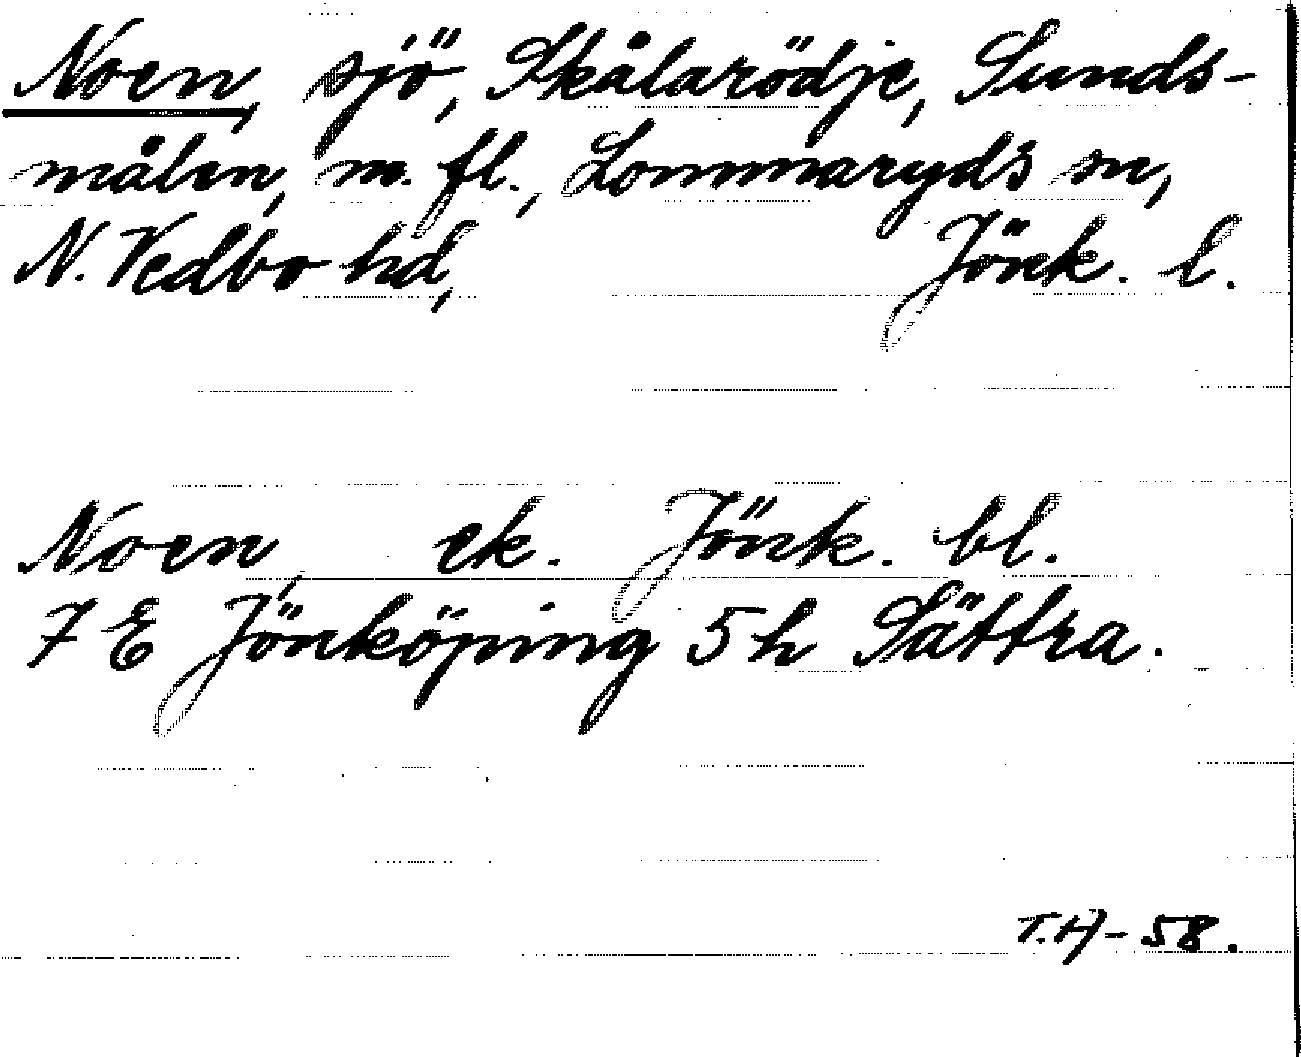 Noen, sjö, Skålarödje, Sunds-
målen, m. fl., Lommaryds sn,
N. Vedbo hd, Jönk. l.
Noen, ek. Jönk. bl.
7 E Jönköping 5 h Sättra.
T.H-58.